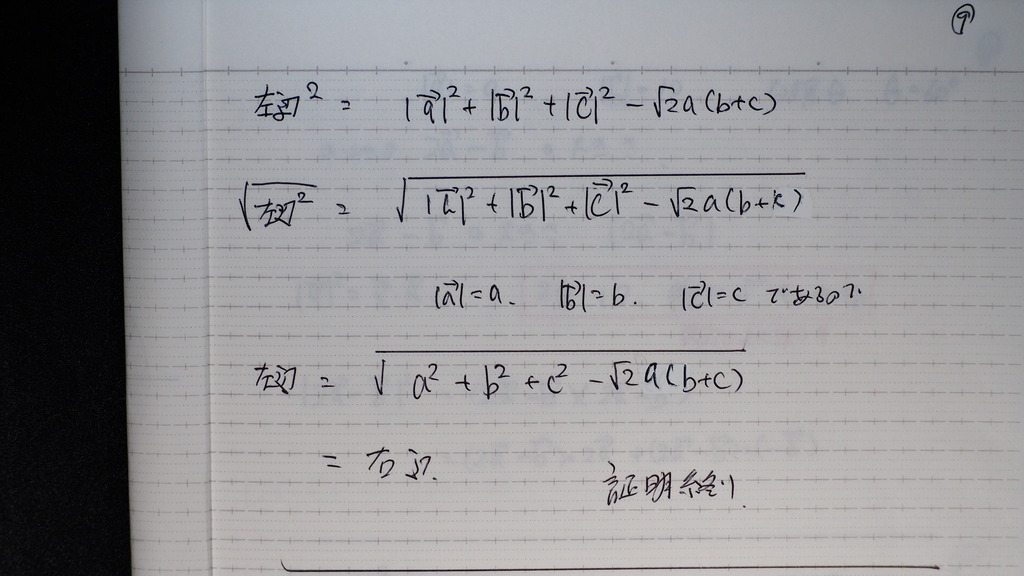 ⑨
左辺² = |a⃗|² + |b⃗|² + |c⃗|² - √2a(b+c)
√左辺² = √|a⃗|² + |b⃗|² + |c⃗|² - √2a(b+c)
|a⃗|=a. |b⃗|=b. |c⃗|=c であるので
左辺 = √a² + b² + c² - √2a(b+c)
= 右辺.
証明終り.